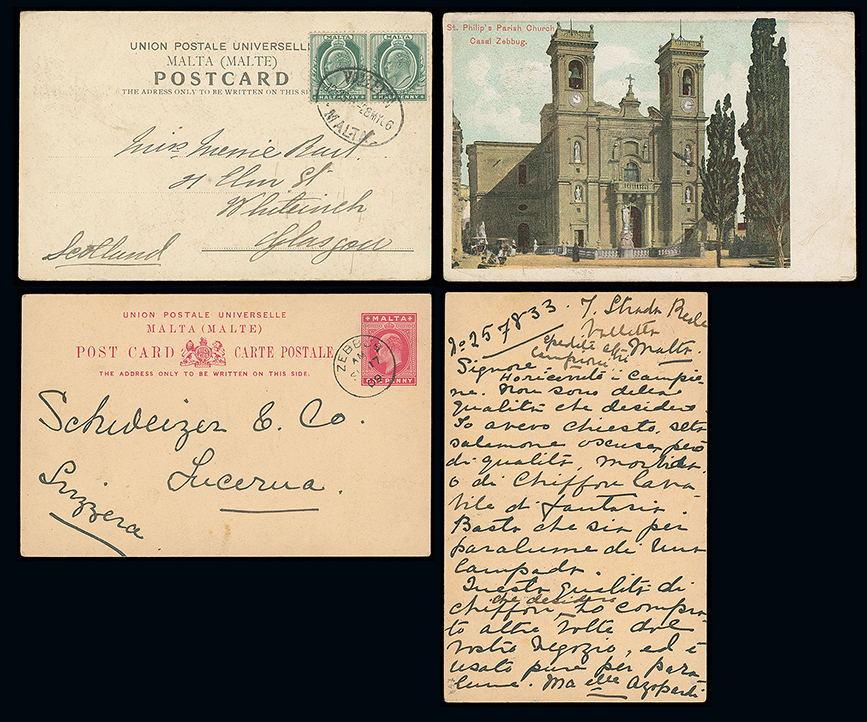 UNION POSTALE UNIVERSELLE
MALTA (MALTE)
POSTCARD
THE ADRESS ONLY TO BE WRITTEN ON THIS
MALTA MALTA
HALF PENNY
VALLETTA
28 MY 06
MALTA
Miss
41 Elm St
Whiteinch
Glasgow
Scotland
St. Philip's Parish Church
Casal Zebbug.
UNION POSTALE UNIVERSELLE
MALTA (MALTE)
POST CARD CARTE POSTALE
THE ADDRESS ONLY TO BE WRITTEN ON THIS SIDE.
MALTA
ONE PENNY
ZEBBUG
AM
17
Schweizer & Co.
Lucerna.
Svizzera
No 257833. 7, Strada Reale
Valletta
Malta.
campioni
Signore
Ho ricevuto i campio-
ne. Non sono della
qualità che desidero.
Io avevo chiesto, seta
salamone oscura, però
di qualità, morbida
o di Chiffon lava
bile di fantasia.
Basta che sia per
paralume di una
lampada.
Questa qualità di
che desidero
chiffon, ho compra-
to altre volte dal
vostro negozio, ed è
usato pure per para
lume. Ma elle Azopardi